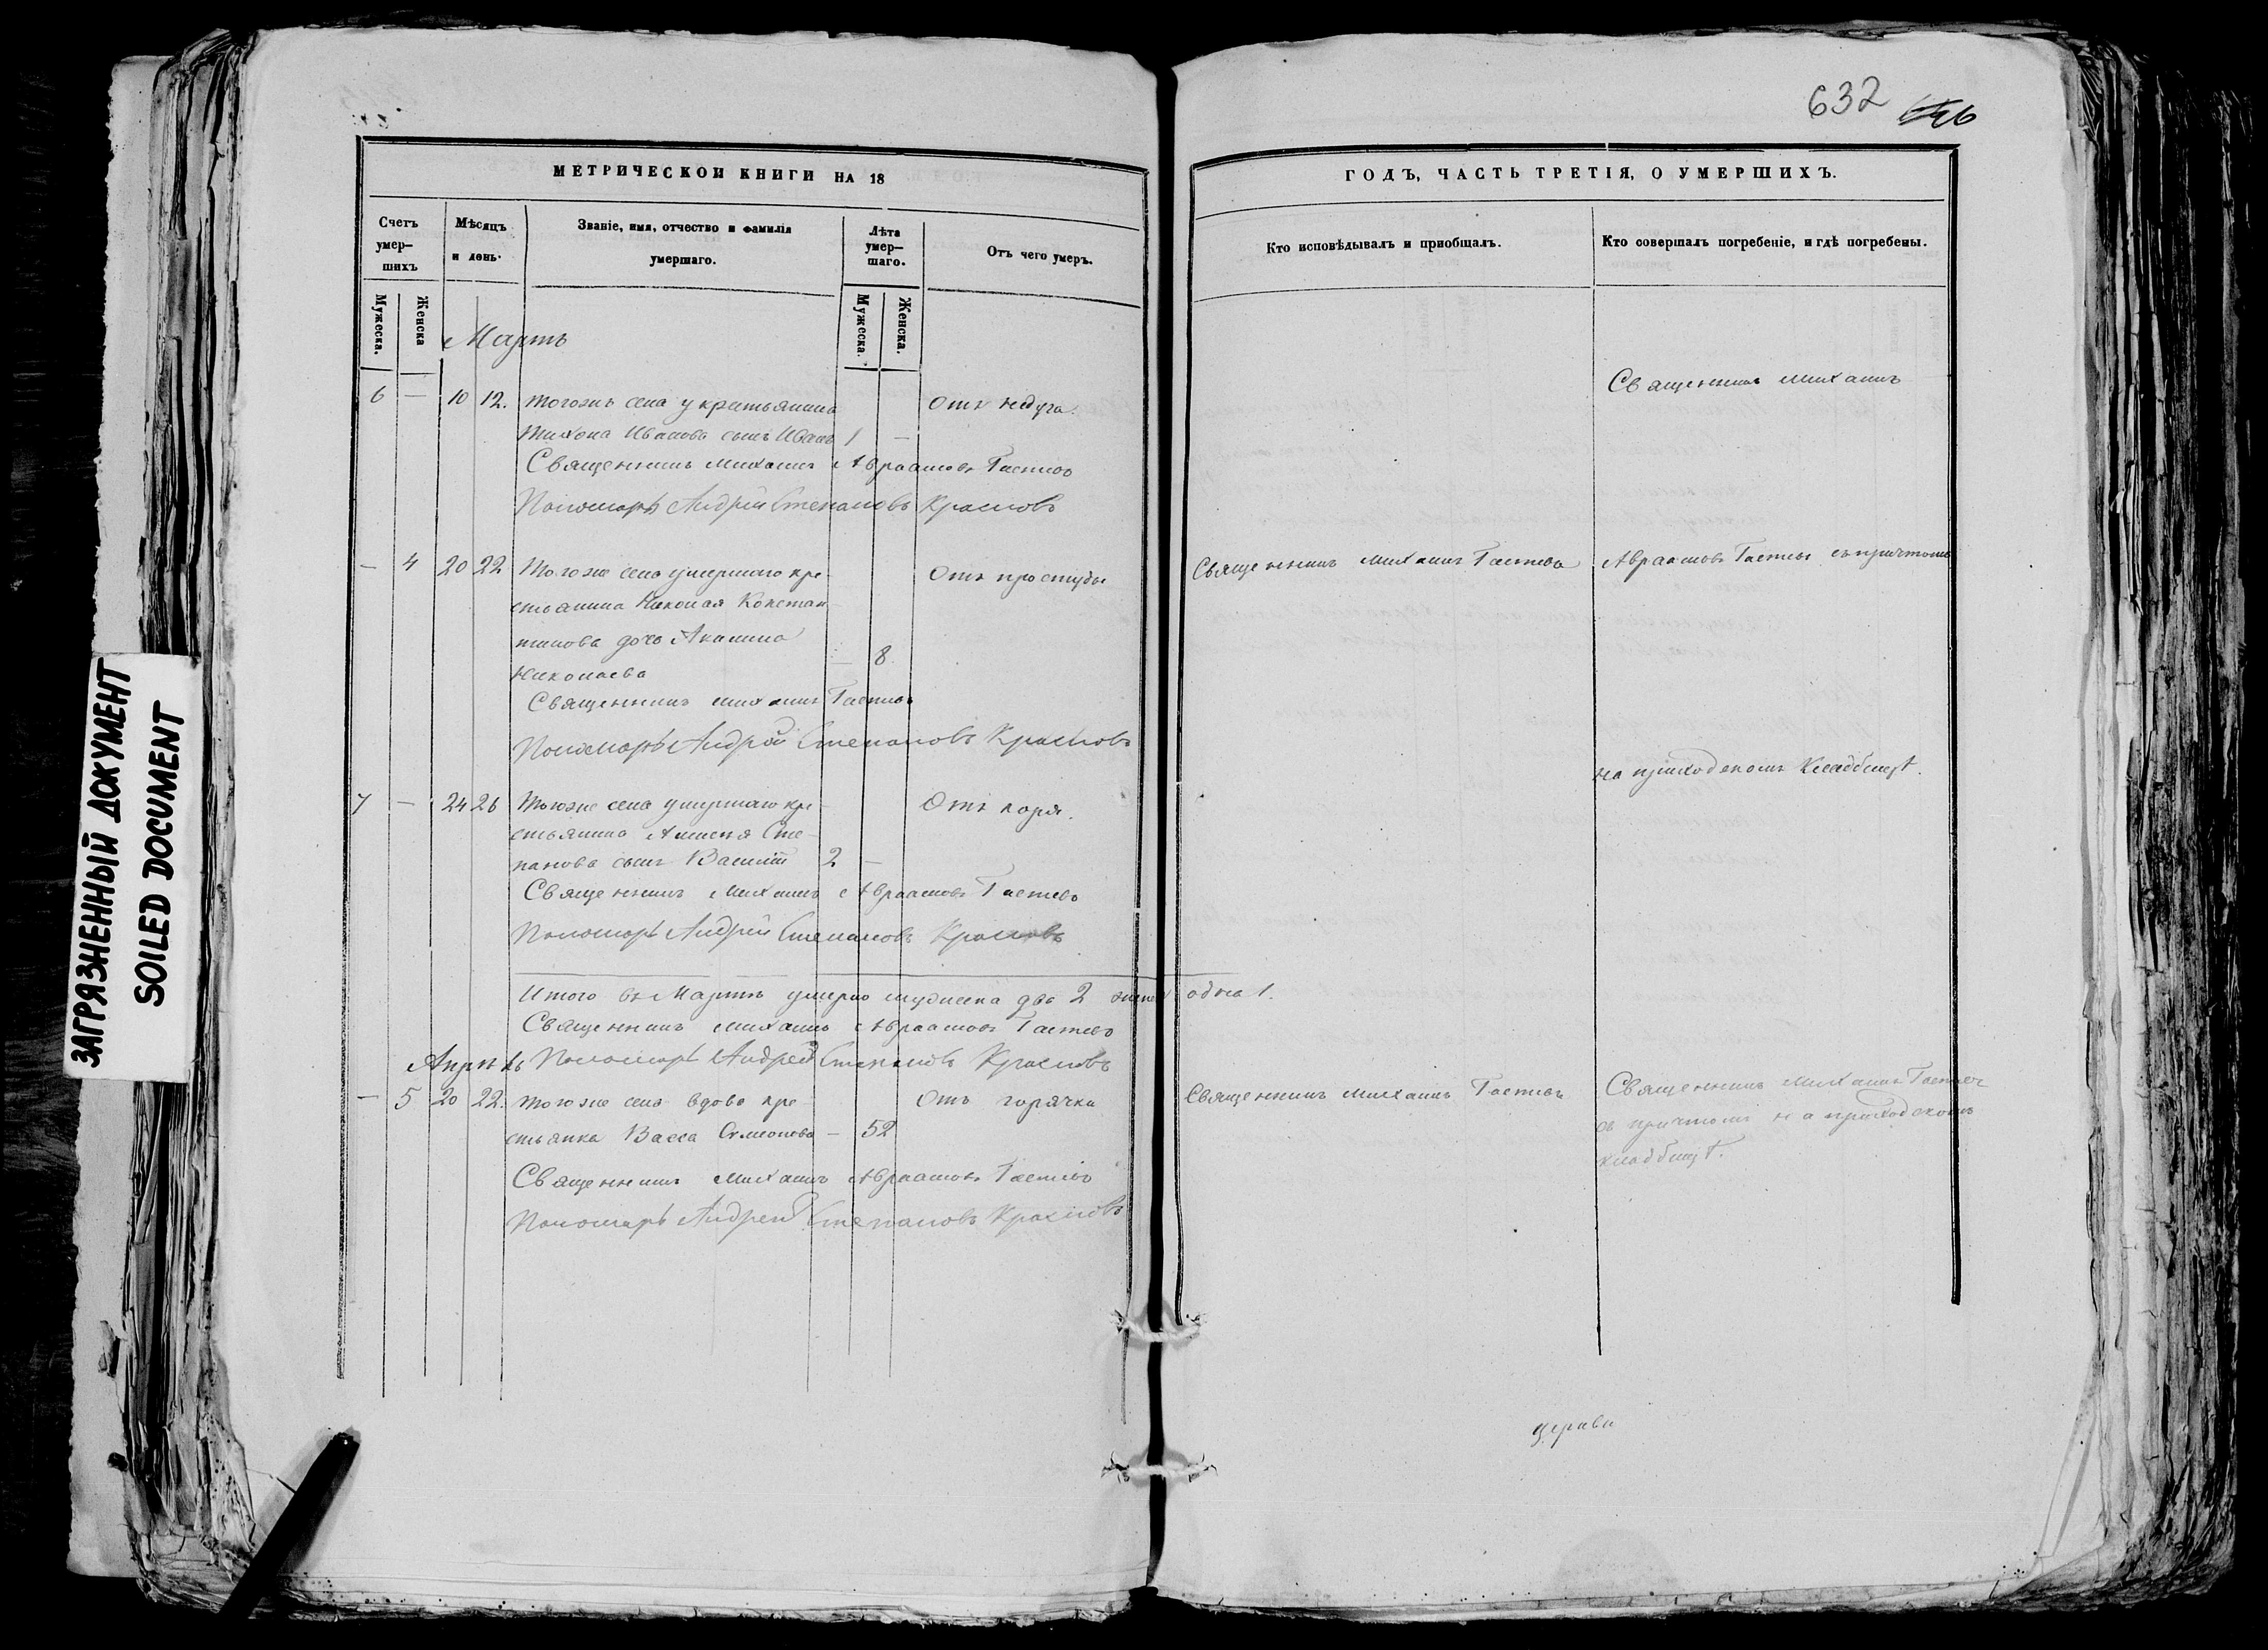 632
МЕТРИЧЕСКОЙ КНИГИ НА 18
ГОДЪ, ЧАСТЬ ТРЕТІЯ, О УМЕРШИХЪ.
Счетъ умер-шихъ
Мѣсяцъ и день.
Званіе, имя, отчество и фамилія умершаго.
Лѣта умер-шаго.
Отъ чего умеръ.
Кто исповѣдывалъ и пріобщалъ.
Кто совершалъ погребеніе, и гдѣ погребены.
Мужеска.
Женска
Мужеска.
Женска.
Мартъ
Священникъ Михаилъ
6 — 10 12. тогожъ села у крестьянина Отъ недуга.
Тихона Иванова сынъ Иванъ 1 —
Священникъ Михаилъ Авраамовъ
Пономарь Андрей Степановъ Красновъ
— 4 20 22 Тогоже села умершаго кре- Отъ простуды
Священникъ Михаилъ
Авраамовъ съ причтомъ
стьянина Николая Констан-
тинова дочь Акилина
Николаева — 8
Священникъ Михаилъ
Пономарь Андрей Степановъ Красновъ
на приходскомъ кладбищѣ.
7 — 24 26 Тогоже села умершаго кре- Отъ коря.
стьянина Алексея Сте-
панова сынъ Василій 2 —
Священникъ Михаилъ Авраамовъ
Пономарь Андрей Степановъ Красновъ
Итого въ Мартѣ умерло мужеска два 2 женска одна 1.
Священникъ Михаилъ Авраамовъ
Пономарь Андрей Степановъ Красновъ
Апрѣль
— 5 20 22. тогоже села вдова кре- Отъ горячки
Священникъ Михаилъ
Священникъ Михаилъ
стьянка Васса Семионова — 52
съ причтомъ на приходскомъ
кладбищѣ.
Священникъ Михаилъ Авраамовъ
Пономарь Андрей Степановъ Красновъ
ЗАГРЯЗНЕННЫЙ ДОКУМЕНТ
SOILED DOCUMENT